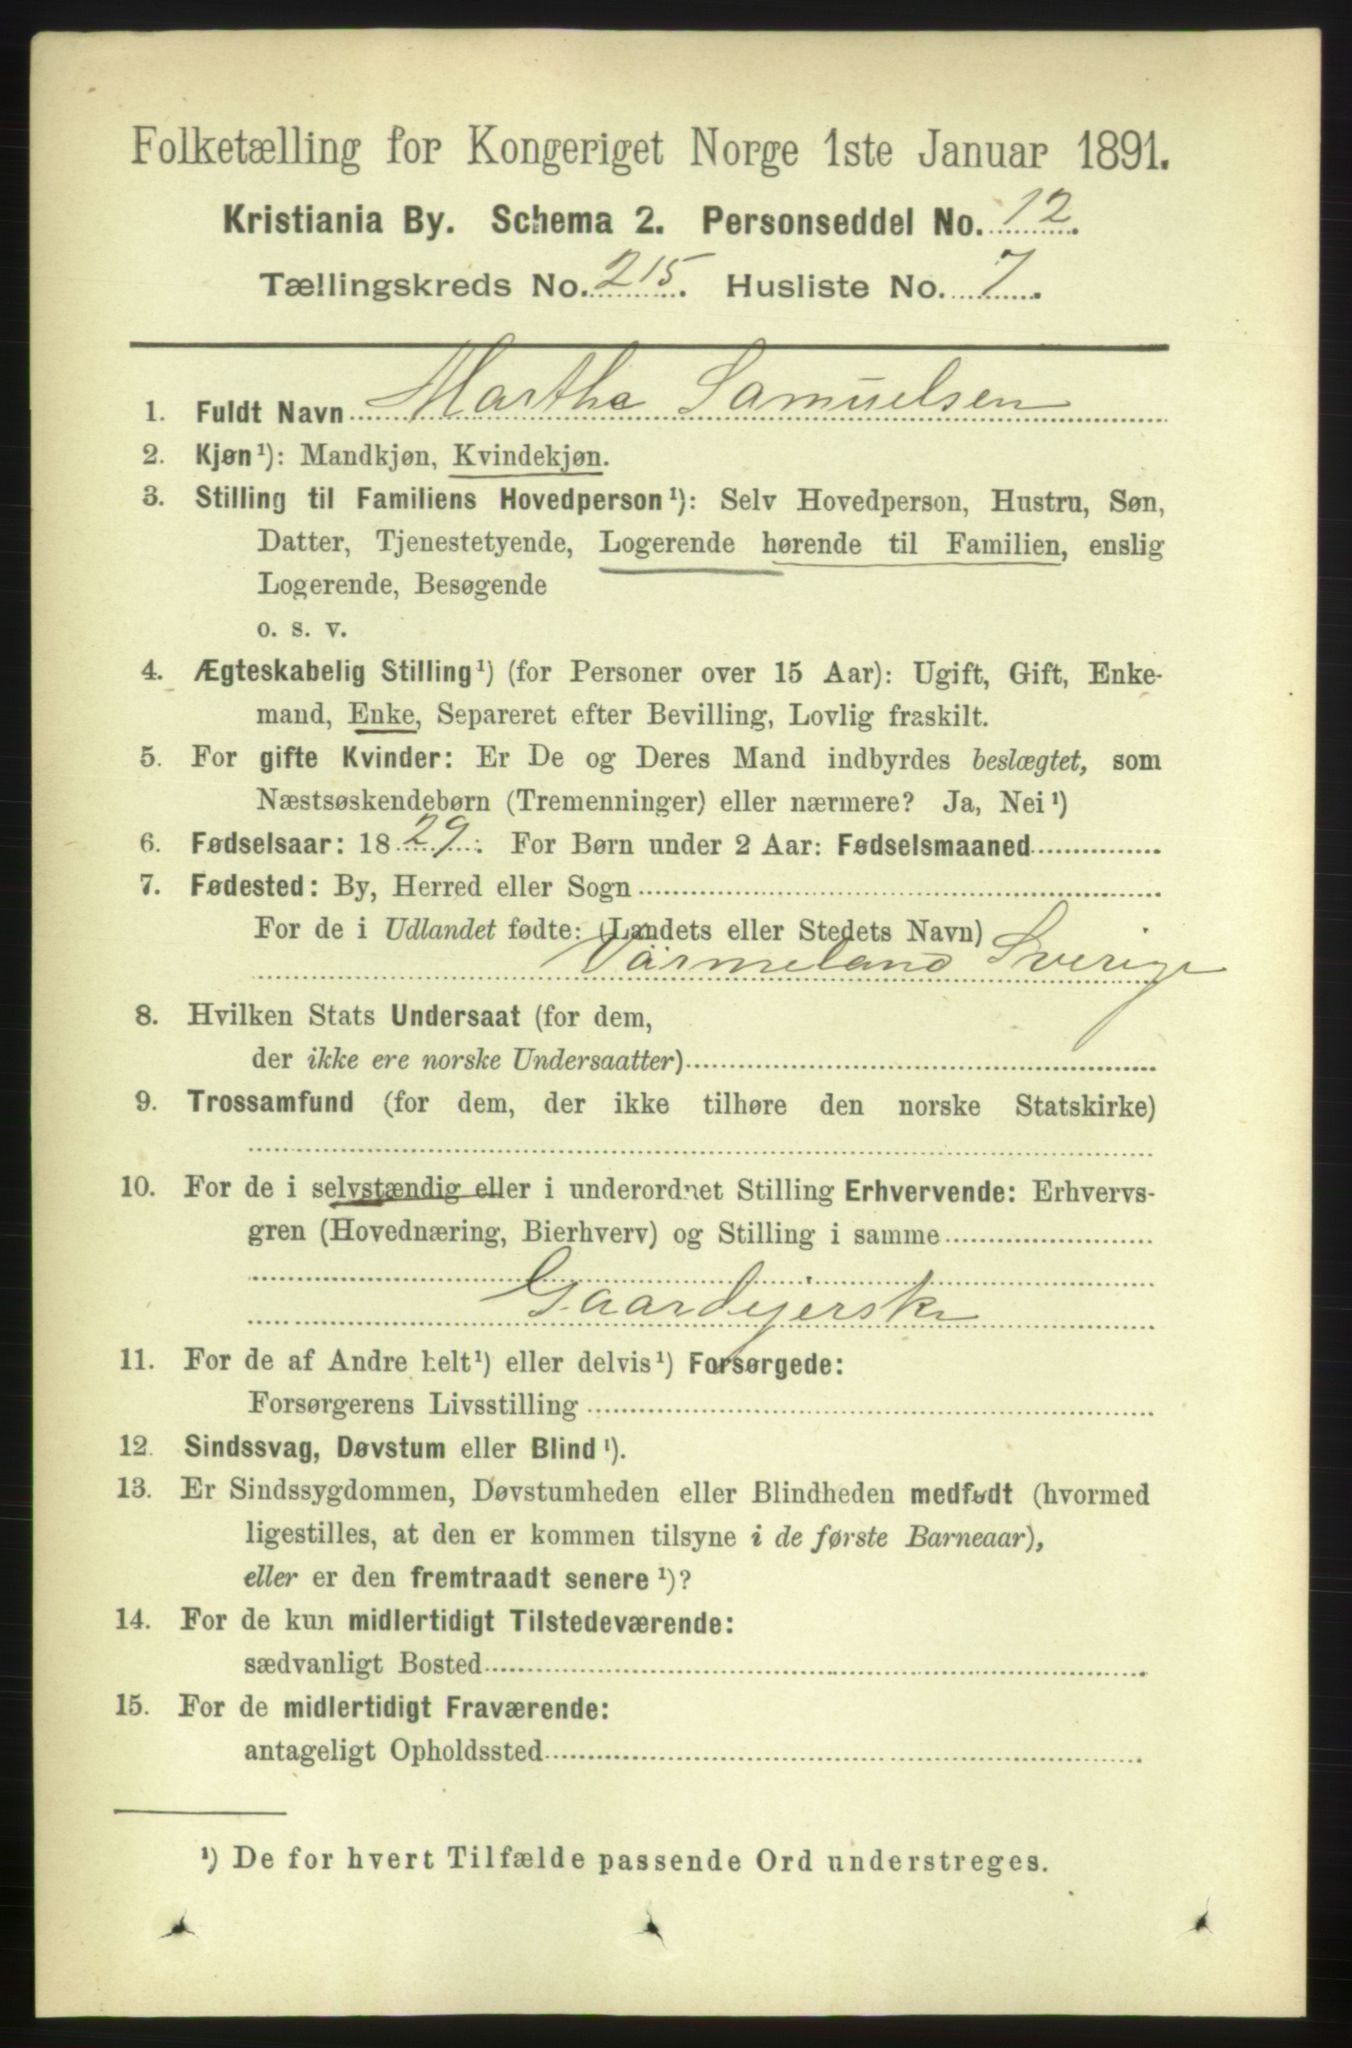 Folketælling for Kongeriget Norge 1ste Januar 1891.
Kristiania By. Schema 2. Personseddel No. 12.
Tællingskreds No. 215. Husliste No. 7.
1. Fuldt Navn Marthe Samuelsen
2. Kjøn¹): Mandkjøn, Kvindekjøn.
3. Stilling til Familiens Hovedperson¹): Selv Hovedperson, Hustru, Søn,
Datter, Tjenestetyende, Logerende hørende til Familien, enslig
Logerende, Besøgende
o. s. v.
4. Ægteskabelig Stilling¹) (for Personer over 15 Aar): Ugift, Gift, Enke-
mand, Enke, Separeret efter Bevilling, Lovlig fraskilt.
5. For gifte Kvinder: Er De og Deres Mand indbyrdes beslægtet, som
Næstsøskendebørn (Tremenninger) eller nærmere? Ja, Nei¹)
6. Fødselsaar: 1829. For Børn under 2 Aar: Fødselsmaaned
7. Fødested: By, Herred eller Sogn
For de i Udlandet fødte: (Landets eller Stedets Navn)
Värmeland Sverige
8. Hvilken Stats Undersaat (for dem,
der ikke ere norske Undersaatter)
9. Trossamfund (for dem, der ikke tilhøre den norske Statskirke)
10. For de i selvstændig eller i underordnet Stilling Erhvervende: Erhvervs-
gren (Hovednæring, Bierhverv) og Stilling i samme
Gaardejerske
11. For de af Andre helt¹) eller delvis¹) Forsørgede:
Forsørgerens Livsstilling
12. Sindssvag, Døvstum eller Blind¹).
13. Er Sindssygdommen, Døvstumheden eller Blindheden medfødt (hvormed
ligestilles, at den er kommen tilsyne i de første Barneaar),
eller er den fremtraadt senere¹)?
14. For de kun midlertidigt Tilstedeværende:
sædvanligt Bosted
15. For de midlertidigt Fraværende:
antageligt Opholdssted
¹) De for hvert Tilfælde passende Ord understreges.